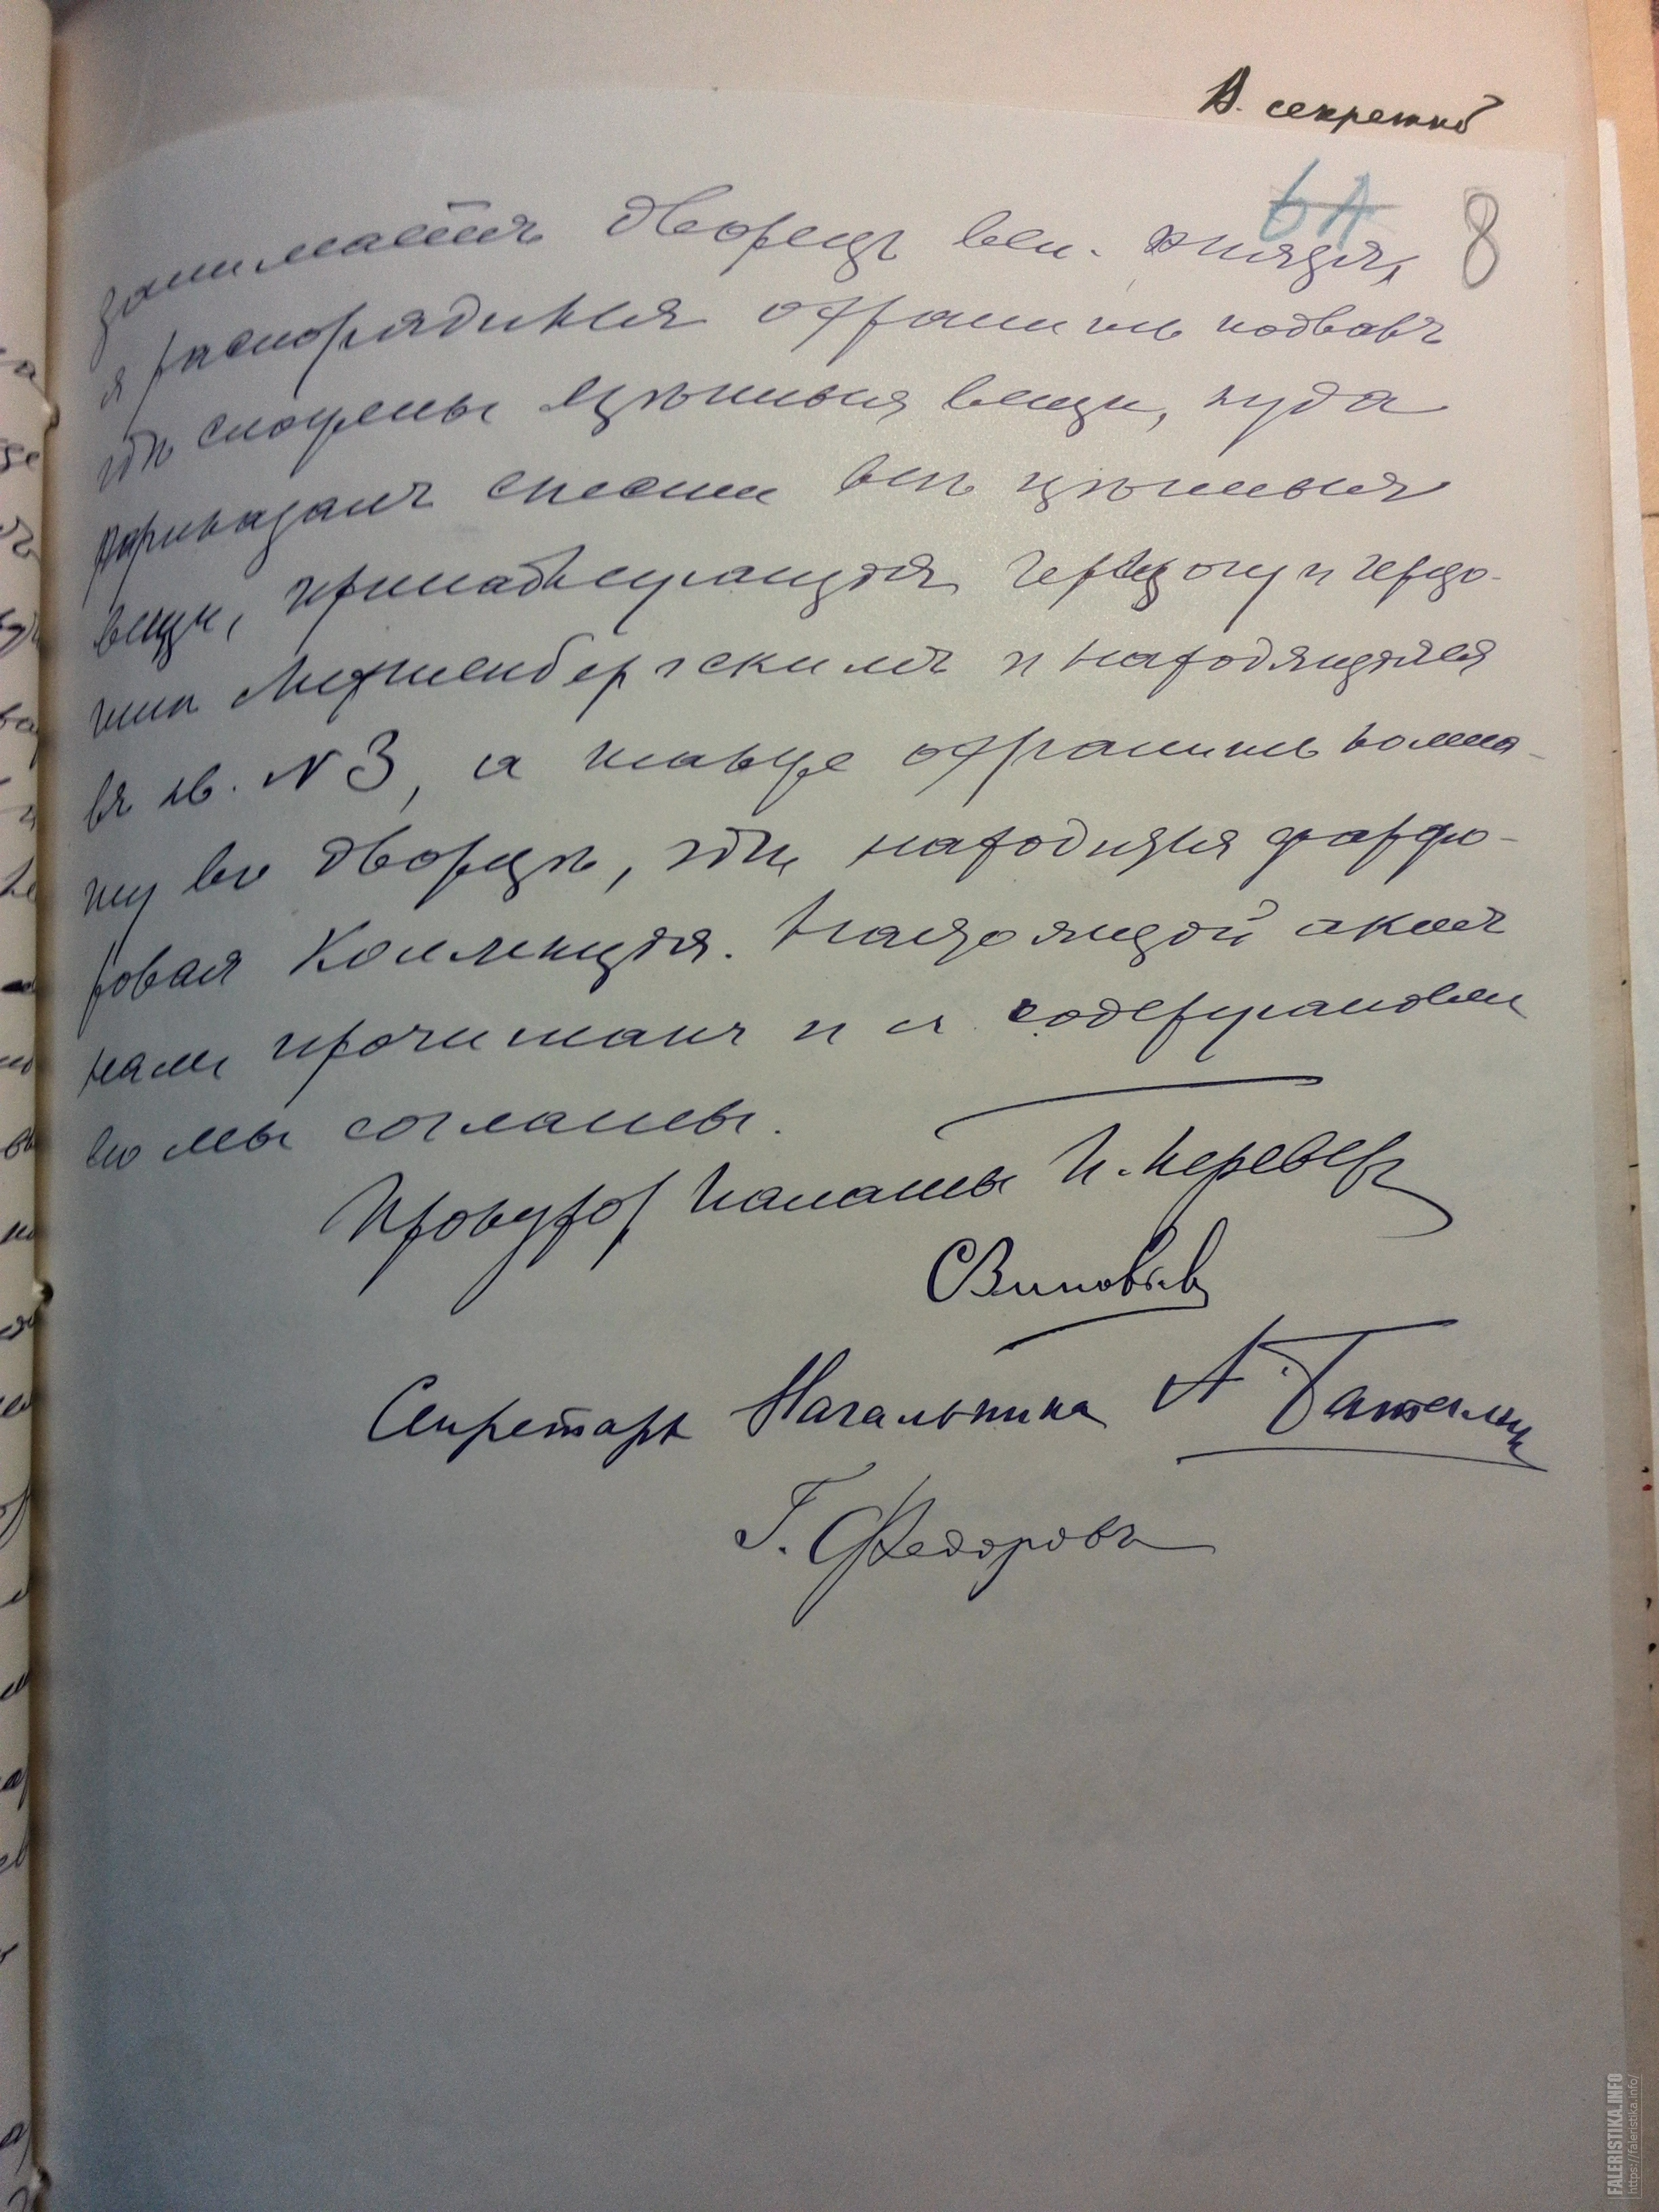 В. секретно
6А 8
занимаетъ дворецъ вел. князя,
я распорядился охранить подвалъ
гдѣ сложены цѣнныя вещи, куда
приказалъ снести всѣ цѣнныя
вещи, принадлежащія герцогу и герцо-
гинѣ Лейхтенбергскимъ и находящіяся
въ кв. № 3, а также охранить комна-
ту во дворцѣ, гдѣ находится фарфо-
ровая коллекція. Настоящій актъ
нами прочитанъ и съ содержаніемъ
его мы согласны.
Прокуроръ Палаты П. Переверз
Секретарь Начальника А.
Г. Федоровъ
FALERISTIKA.INFO
https://faleristika.info/